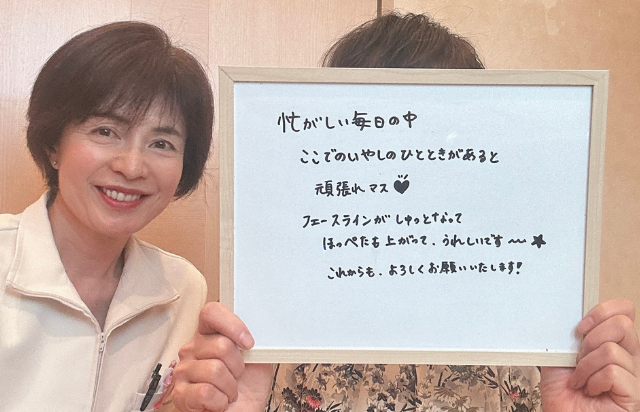 忙がしい毎日の中
ここでのいやしのひとときがあると
頑張れマス♥
フェースラインがしゅっとなって
ほっぺたも上がって、うれしいです〜★
これからも、よろしくお願いいたします!